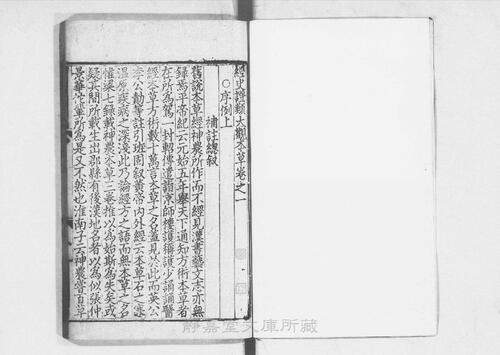 經史證類大觀本草卷之一
○序例上
補註總叙
舊說本草經神農所作而不經見漢書藝文志亦無
錄焉平帝紀云元始五年舉天下通知方術本草者
在所為駕一封軺傳遣詣京師樓護傳稱護少誦醫
經本草方術數十萬言本草之名蓋見於此而英公
李公勣等註引班固叙黃帝內外經云本草石之寒
溫原疾病之深淺此乃論經方之語而無本草之名
惟梁七錄載神農本草三卷推以為始斯為失矣或
疑其間所載生出郡縣有後漢地名者以為似張仲
景華佗輩所為是又不然也淮南子云神農嘗百草
静嘉堂文庫所蔵